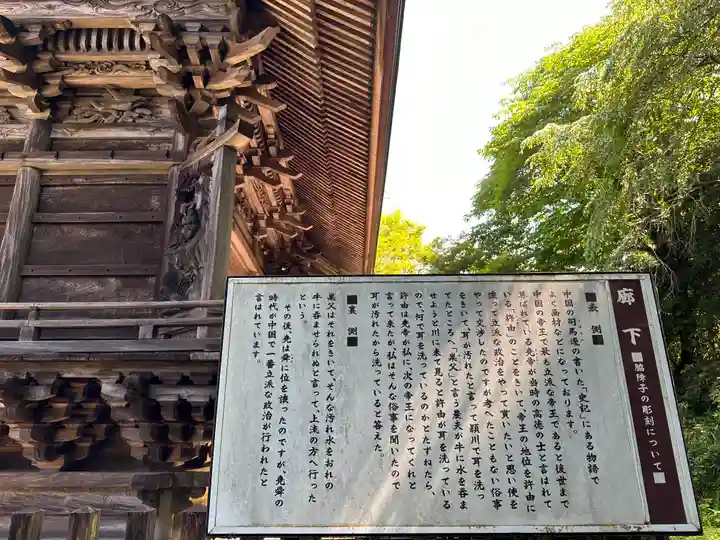 廊下
■脇障子の彫刻について■
■表側■
中国の司馬遷の書いた、「史記」にある物語で
よく画材などになっております。
中国の帝王で最も立派な帝王であると後世まで
尊ばれている尭帝が当時の高徳の士と言はれて
いる「許由」のことをきゝ、帝王の地位を許由に
譲って立派な政治をやって貰いたいと思い使を
やって交渉したのですが考へたこともない俗事
をきいて、耳が汚れたと言って頴川で耳を洗っ
てたところへ、「巣父」と言う農夫が牛に水を呑ま
せようと川に来て見ると許由が耳を洗っている
ので、何で耳を洗っているのかとたずねたら、
許由は尭帝が私に、次の帝王になってくれと
言って来たが、私はそんな俗事を聞いたので
耳が汚れたから洗っていると答えた。
■裏側■
巣父はそれをきいて、そんな汚れ水をおれの
牛に呑ませられぬと言って、上流の方へ行った
という。
その後、尭は舜に位を譲ったのですが、尭舜の
時代が中国で一番立派な政治が行われたと
言はれています。